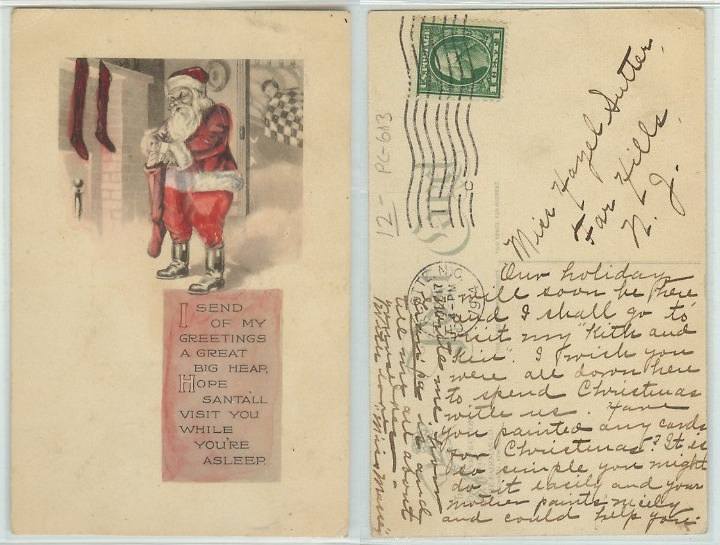 I SEND
OF MY
GREETINGS
A GREAT
BIG HEAP,
HOPE
SANTA'LL
VISIT YOU
WHILE
YOU'RE
ASLEEP.
U.S. POSTAGE
1 CENT 1
12- PC-613
Miss Hazel Sutter,
Far Hills,
N. J.
N.C.
4-PM
1914
Our holiday
will soon be here
and I shall go to
visit my "Kith and
Kin". I wish you
were all down here
to spend Christmas
with us. Have
you painted any cards
for Christmas? It is
so simple you might
do it easily and your
mother paints nicely
and could help you
tell me all about